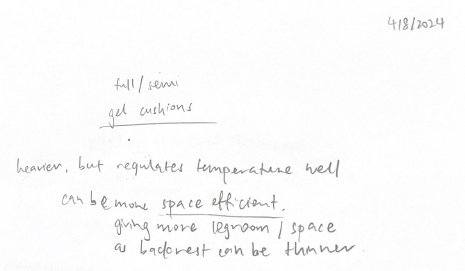 4/8/2024
full/semi
gel cushions
heavier, but regulates temperature well
can be more space efficient,
giving more legroom / space
as backrest can be thinner.